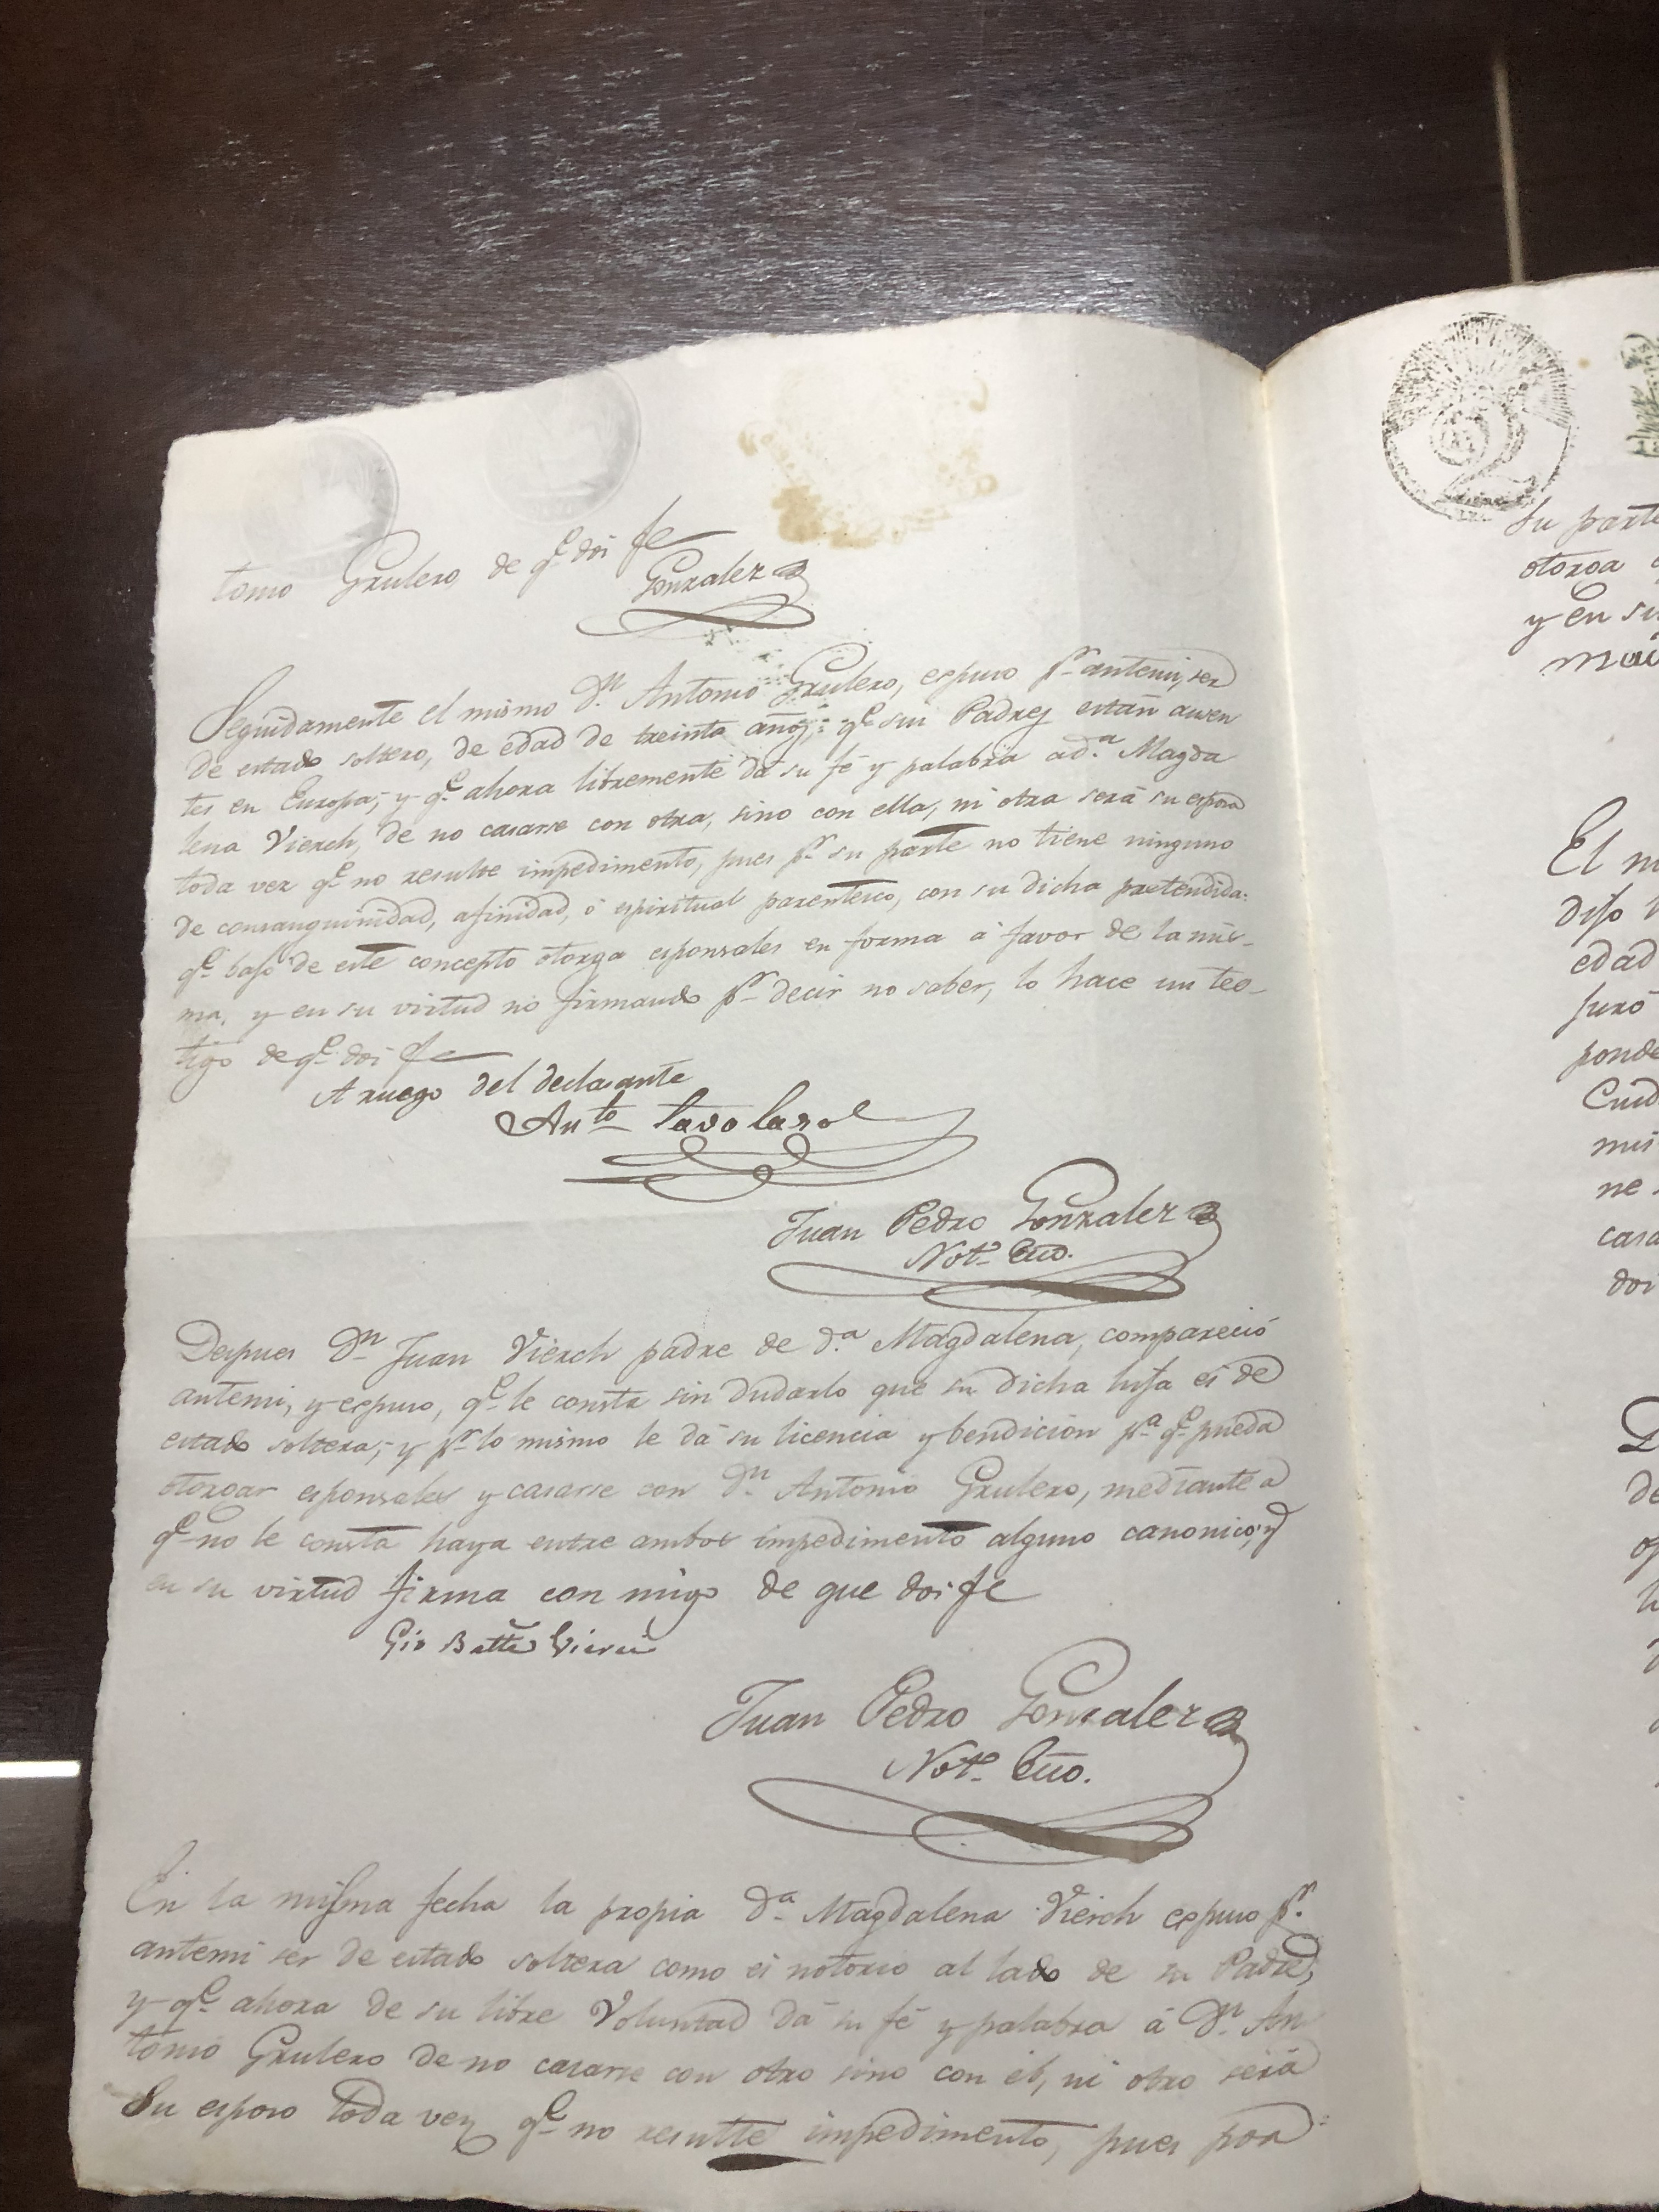 tonio Grulero, de q.e doi fe
Gonzalez
Seguidamente el mismo D.n Antonio Grulero, espuso p.r antemi, ser
de estado soltero, de edad de treinta años; q.e sus Padres están ausen
tes en Europa; y q.e ahora libremente dá su fé y palabra a d.a Magda
lena Vierch, de no casarse con otra, sino con ella, ni otra será su esposa
toda vez q.e no resulte impedimento, pues p.r su parte no tiene ninguno
de consanguinidad, afinidad, ó espiritual parentesco, con su dicha pretendida:
q.e bajo de este concepto otorga esponsales en forma á favor de la mis-
ma, y en su virtud no firmando p.r decir no saber, lo hace un tes-
tigo de q.e doi fe
A ruego del declarante
Ant.o Tavolara
Juan Pedro Gonzalez
Not.o Ecco.
Despues D.n Juan Vierch padre de d.a Magdalena, compareció
antemi, y espuso, q.e le consta sin dudarlo que su dicha hija es de
estado soltera; y p.r lo mismo le dá su licencia y bendicion p.a q.e pueda
otorgar esponsales y casarse con D.n Antonio Grulero, mediante a
q.e no le consta haya entre ambos impedimento alguno canonico; y
en su virtud firma con migo de que doi fe
Gio Batta Vierci
Juan Pedro Gonzalez
Not.o Ecco.
En la misma fecha la propia D.a Magdalena Vierch espuso p.r
antemi ser de estado soltera como es notorio al lado de su Padre,
y q.e ahora de su libre Voluntad dá su fé y palabra á D.n An
tonio Grulero de no casarse con otro sino con él, ni otro será
Su esposo toda vez q.e no resulte impedimento, pues por
Su parte
otorga
y en su
El m
dijo
edad
juró
ponde
Ciud
mis
ne
casa
doi
D
de